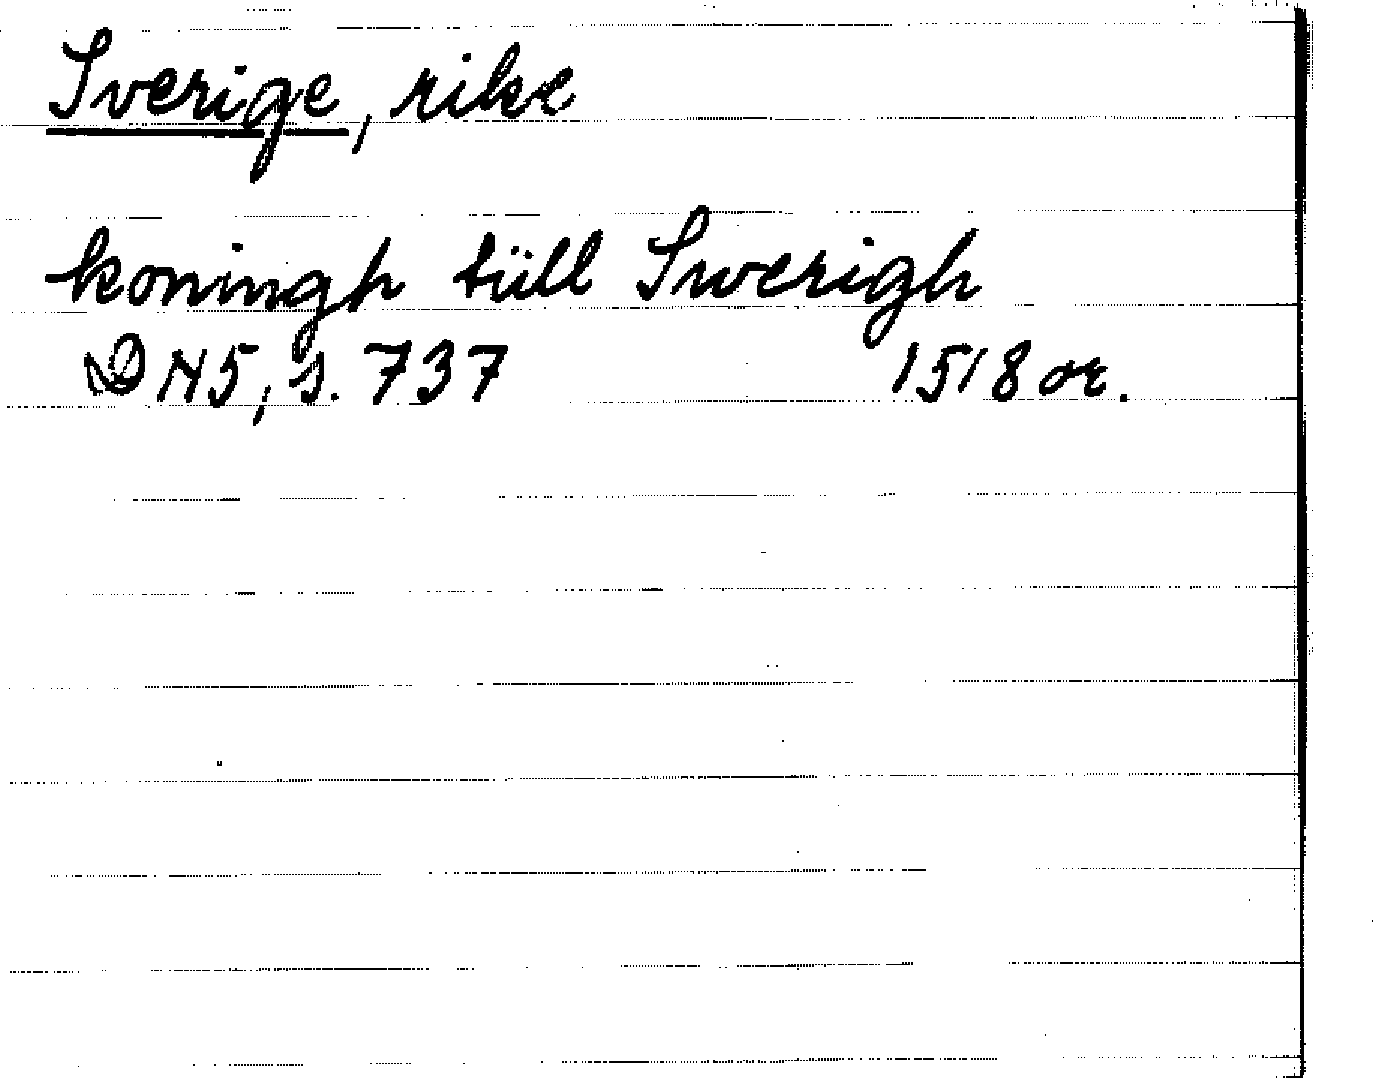 Sverige, rike
koningh tüll Swerigh
DN5, s. 737 1518 or.